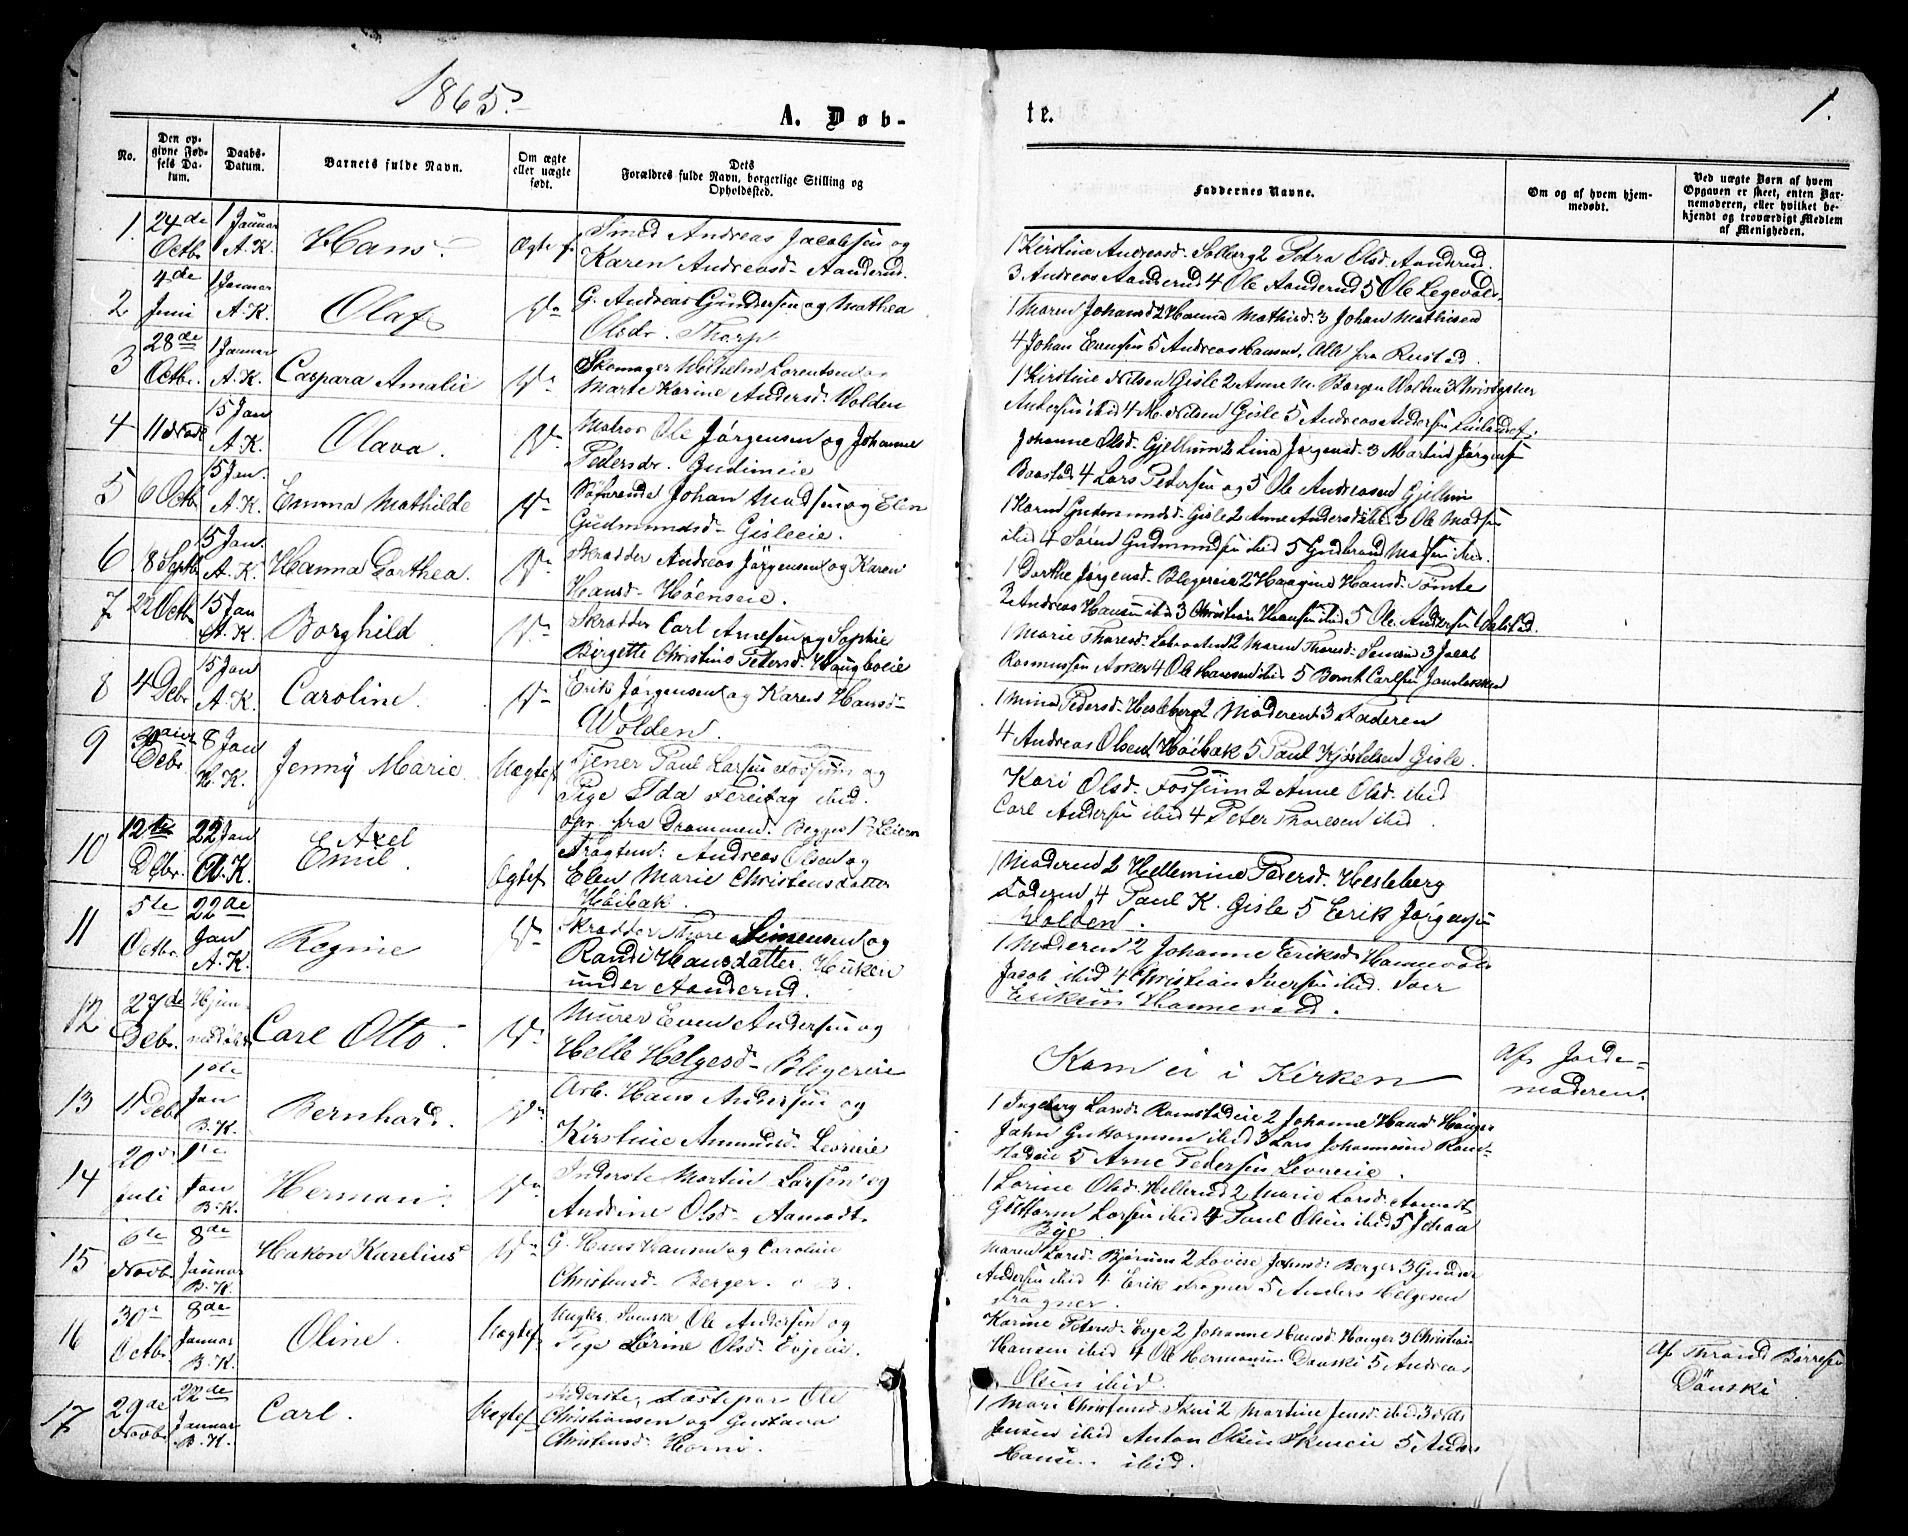 1865.
A. Døb-
te.
1.
No.
Den op-
givne Fød-
sels Da-
tum.
Daabs-
Datum.
Barnets fulde Navn.
Om ægte
eller uægte
født.
Dets
Forældres fulde Navn, borgerlige Stilling og
Opholdssted.
Faddernes Navne.
Om og af hvem hjem-
medøbt.
Ved uægte Børn af hvem
Opgaven er skeet, enten Bar-
nemoderen, eller hvilket be-
kjendt og troværdigt Medlem
af Menigheden.
1. 24de Octbr 1 Januar A. K. Hans Ægtef
Smed Andreas Jacobsen og
Karen Andreasd. Aanderud.
1 Kirstine Andreasd. Solberg 2 Petra Olsd. Aanderud.
3 Andreas Aanderud 4 Ole Aanderud 5 Ole
2 4de Juni 1 Januar A. K. Olaf
G. Andreas Gundersen og Mathea
Olsdr. Thorp
1 Maren Johansd 2 Hanna Mathisd. 3 Johan Mathisen
4 Johan Evensen 5 Andreas Hansen, Alle fra Rustad.
3 28de Octbr. 1 Januar A. K. Caspara Amalie
Skomager Wilhelm Lorentsen og
Marte Karine Andersd. Wolden
1 Kirstine Nilsen Gisle 2 Anne M. Borgen Wolden 3
Andersen ibid 4 M. Nilsen Gisle 5 Andreas Andersen
4 11 Novb 15 Jan A. K. Olava.
Matros Ole Jørgensen og Johanne
Pedersdr. Gudimeie
Johanne Olsd. Gjellum 2 Lina Jørgensd. 3 Martin Jørgens
Baastad 4 Lars Pedersen og 5 Ole Andreasen Gjellum
5 6 Octb 15 Jan. A. K. Emma Mathilde
Søfarende Johan Madsen og Elen
Gudmundsd. Gisleeie.
1 Karen Gudmundsd. Gisle 2 Anne Andersd. ibid. 3 Ole Madsen
ibid 4 Søren Gudmundsen ibid 5 Gudbrand Madsen ibid.
6 8 Septb 15 Jan. A. K. Hanna Dorthea.
Skrædder Andreas Jørgensen og Karen
Hansd. Høenseie.
1 Dorthe Jørgensd. Blegereie 2 Haagine Hansd. Tømte
2 Andreas Hansen ibid 3 Christian Hansen ibid 5 Ole Andersen
7 22 Octb. 15 Jan A. K. Borghild
Skrædder Carl Arnesen og Sophie
Birgette Christine Petersd. Haugboeie
1 Marie Thoresd. 2 Maren Thoresd. 3 Jacob
Rasmussen Asker 4 Ole Hansen ibid 5 Bernt Carlsen
8 4 Debr 15 Jan A. K. Caroline.
Erik Jørgensen og Karen Hansd.
Wolden.
1 Mina Pedersd. Hesleberg 2 Moderen 3 Faderen
4 Andreas Olsen Høibak 5 Paul Kjøstelsen Gisle.
9 Debr. 8 Jan H. K. Jenny Marie Uægtef
Tjener Paul Larsen Fossum og
Pige Ida Freitag ibid.
opr. fra Drammen. Begges 1ste Leierm
Kari Olsd. Fossum 2 Anne Olsd. ibid
Carl Andersen ibid 4 Peter Thoresen ibid.
10 12te Debr. 22 Jan A. K. Axel
Emil. Ægtef
Andreas Olsen og
Elen Marie Christensdatter
Høibak.
1 Moderen 2 Hellemine Pedersd. Hesleberg
Faderen 4 Paul K. Gisle 5 Erik Jørgensen
Wolden.
11 5te Octbr. 22de Jan A. K. Regine
Skrædder Thore Simensen og
Randi Hansdatter. Huken
under Aanderud.
1 Moderen 2 Johanne Eriksd. Hannevold
Jacob ibid 4 Christian Iversen ibid. Iver
Eriksen Hannevold.
12 27de Debr. Hjem-
medøbt Carl Otto
Murer Even Andersen og
Helle Helgesd. Blegereie
Kom ei i Kirken
Af Jorde-
moderen.
13 11 Debr 1ste Jan B. K. Bernhard.
Arb. Hans Andersen og
Kirstine Amundsd. Leoreie
1 Ingeborg Larsd. Ramstadeie 2 Johanne Hansd. Hauger
John Guttormsen ibid 3 Lars Johannesen Ram-
stadeie 5 Arne Pedersen Levereie.
14 20de Juli 1ste Jan B. K. Herman.
Inderste Martin Larsen og
Andrine Olsd. Aamodt.
1 Lorine Olsd. Hellerud 2 Marie Larsd. Aamodt
Guttorm Larsen ibid 4 Paul Olsen ibid 5 Johan
Bye
15 6te Novbr 8de Januar B. K. Hakon Karelius
G. Hans Hansen og Caroline
Christensd. Berger.
Maren Larsd. Bjørum 2 Lovise Johnsd. Berger 3 Gunder
Andersen ibid 4 Erik Fragner 5 Anders Helgesen
Fragner.
16 30te Octbr. 8de Januar B. K. Oline. Uægtef
Ungk. Svensk Ole Andersen og
Pige Lørine Olsd. Evjeeie.
Karine Petersd. Evje 2 Johanne Hansd. Hauger 3 Christian
Hansen ibid 4 Ole Hermansen Danski 5 Andreas
Olsen ibid.
Af Thrond Børresen
Dønski.
17 29de Novb. 22de Januar B. K. Carl. Uægtef
Inderste, Fæstepar Ole
Christiansen og Gustava
Christensd. Horni.
1 Mari Christensd. Skui 2 Martine Jensd. ibid 3 Nils
Jensen ibid Anton Olsen Skuieie 5 Anders
Hansen ibid.